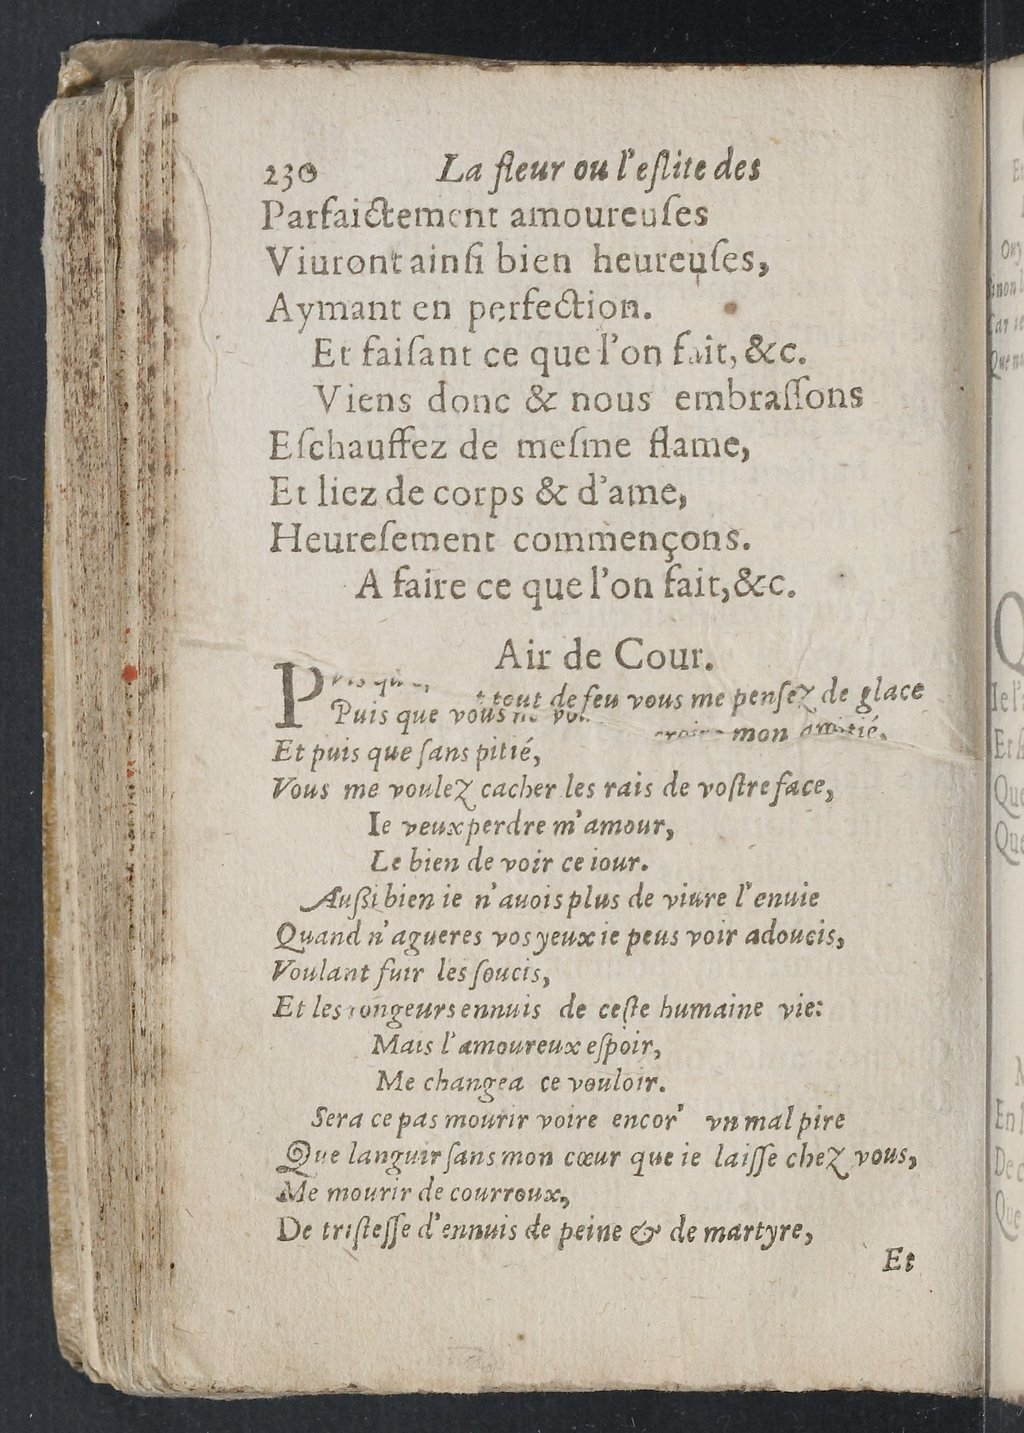 230 La fleur ou l'eſlite des
Parfaictement amoureuſes
Viuront ainſi bien heureuſes,
Aymant en perfection.
Et faiſant ce que l'on fait, &c.
Viens donc & nous embraſſons
Eſchauffez de meſme flame,
Et liez de corps & d'ame,
Heureſement commençons.
A faire ce que l'on fait, &c.
Air de Cour.
tout de feu vous me penſez de glace
Puis que vous mon amitié.
Et puis que ſans pitié,
Vous me voulez cacher les rais de voſtre face,
Ie veux perdre m'amour,
Le bien de voir ce iour.
Auſſi bien ie n'auois plus de viure l'enuie
Quand n'agueres vos yeux ie peus voir adoucis,
Voulant fuir les ſoucis,
Et les rongeurs ennuis de ceſte humaine vie:
Mais l'amoureux eſpoir,
Me changea ce vouloir.
Sera ce pas mourir voire encor' vn mal pire
Que languir ſans mon cœur que ie laiſſe chez vous,
Me mourir de courroux,
De triſteſſe d'ennuis de peine & de martyre,
Et